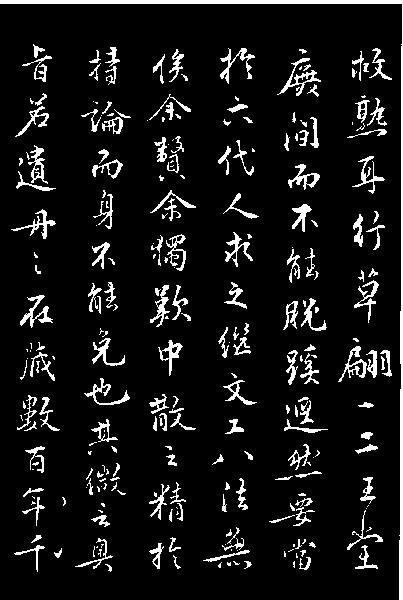 故熟耳行草翩翩二王堂
廡間而不能脫蹊逕然要當
於六代人求之繼文工八法兼
俟余贅余獨歎中散之精於
持論而身不能免也其微言奧
旨若遺丹之在藏數百年千